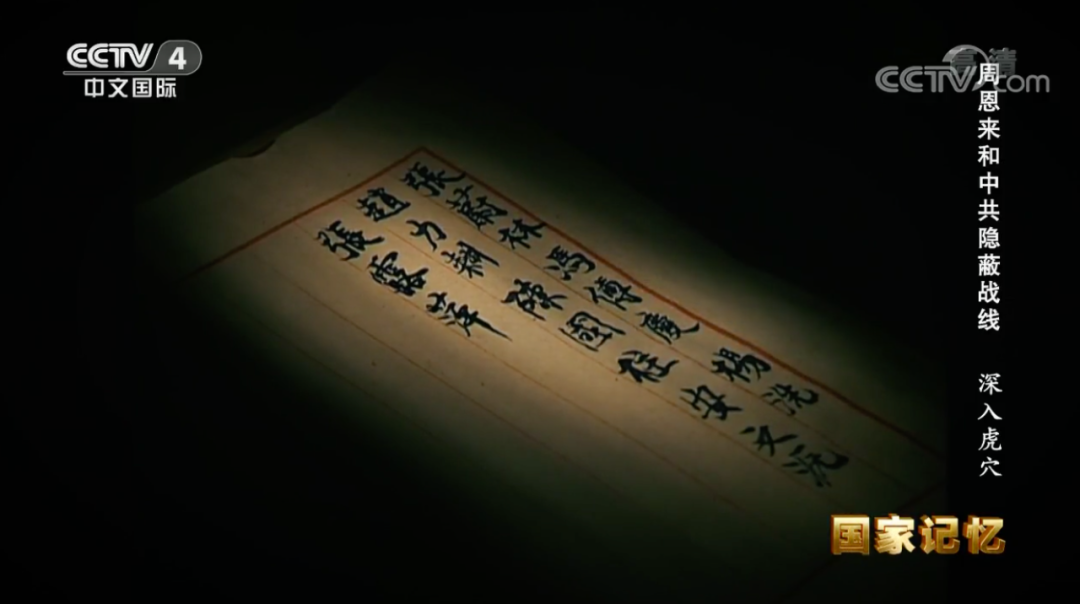 CCTV 4
中文国际
高清
CCTV.com
周恩来和中共隐蔽战线 深入虎穴
張蔚林 馮傅慶 楊洗
趙力 陳國柱 安文
張露萍
国家记忆